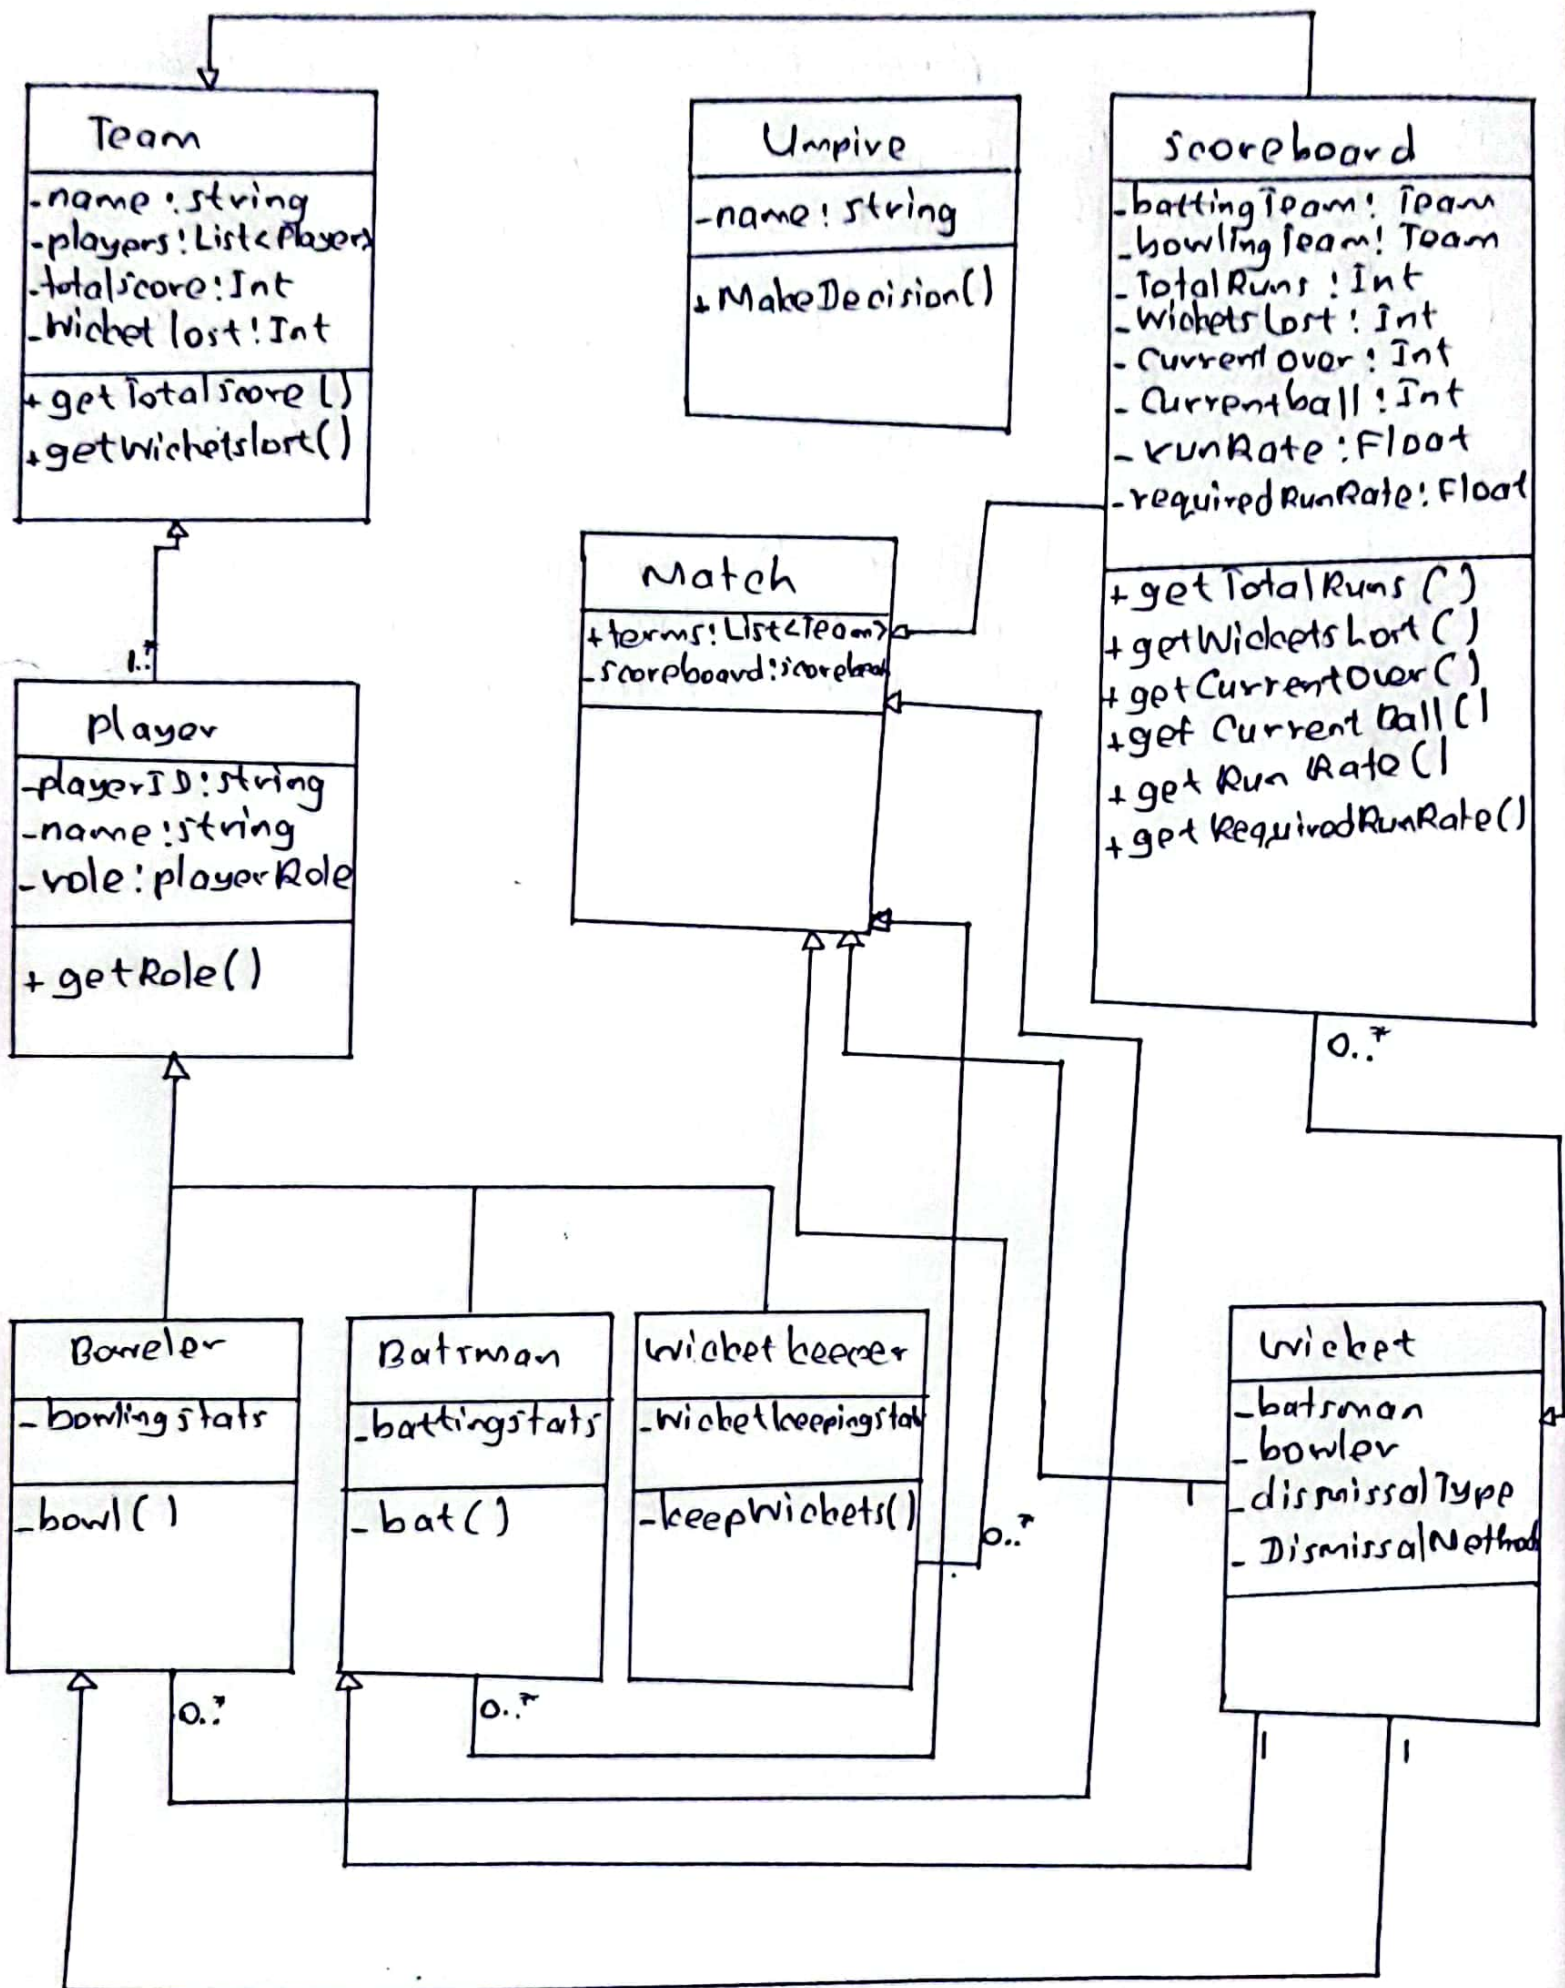 Team
-name:string
-players:List<Player>
-totalscore:Int
-Wicket lost:Int
+getTotalscore()
+getWicketslost()
Umpire
-name:string
+MakeDecision()
scoreboard
-battingTeam:Team
-bowlingTeam:Team
-TotalRuns:Int
-WicketsLost:Int
-Current over:Int
-Currentball:Int
-runRate:Float
-requiredRunRate:Float
+getTotalRuns()
+getWicketsLost()
+getCurrentOver()
+get Current Ball()
+get Run Rate()
+getRequiredRunRate()
Match
+terms:List<Team>
-scoreboard:scoreboad
1..*
player
-playerID:string
-name:string
-role:playerRole
+getRole()
0..*
Boweler
-bowlingstats
-bowl()
0..*
Batsman
-battingstats
-bat()
0..*
wicketkeeper
-wicketkeepingstat
-keepWickets()
0..*
wicket
-batsman
-bowler
-dismissalType
-DismissalMethod
1
1
1